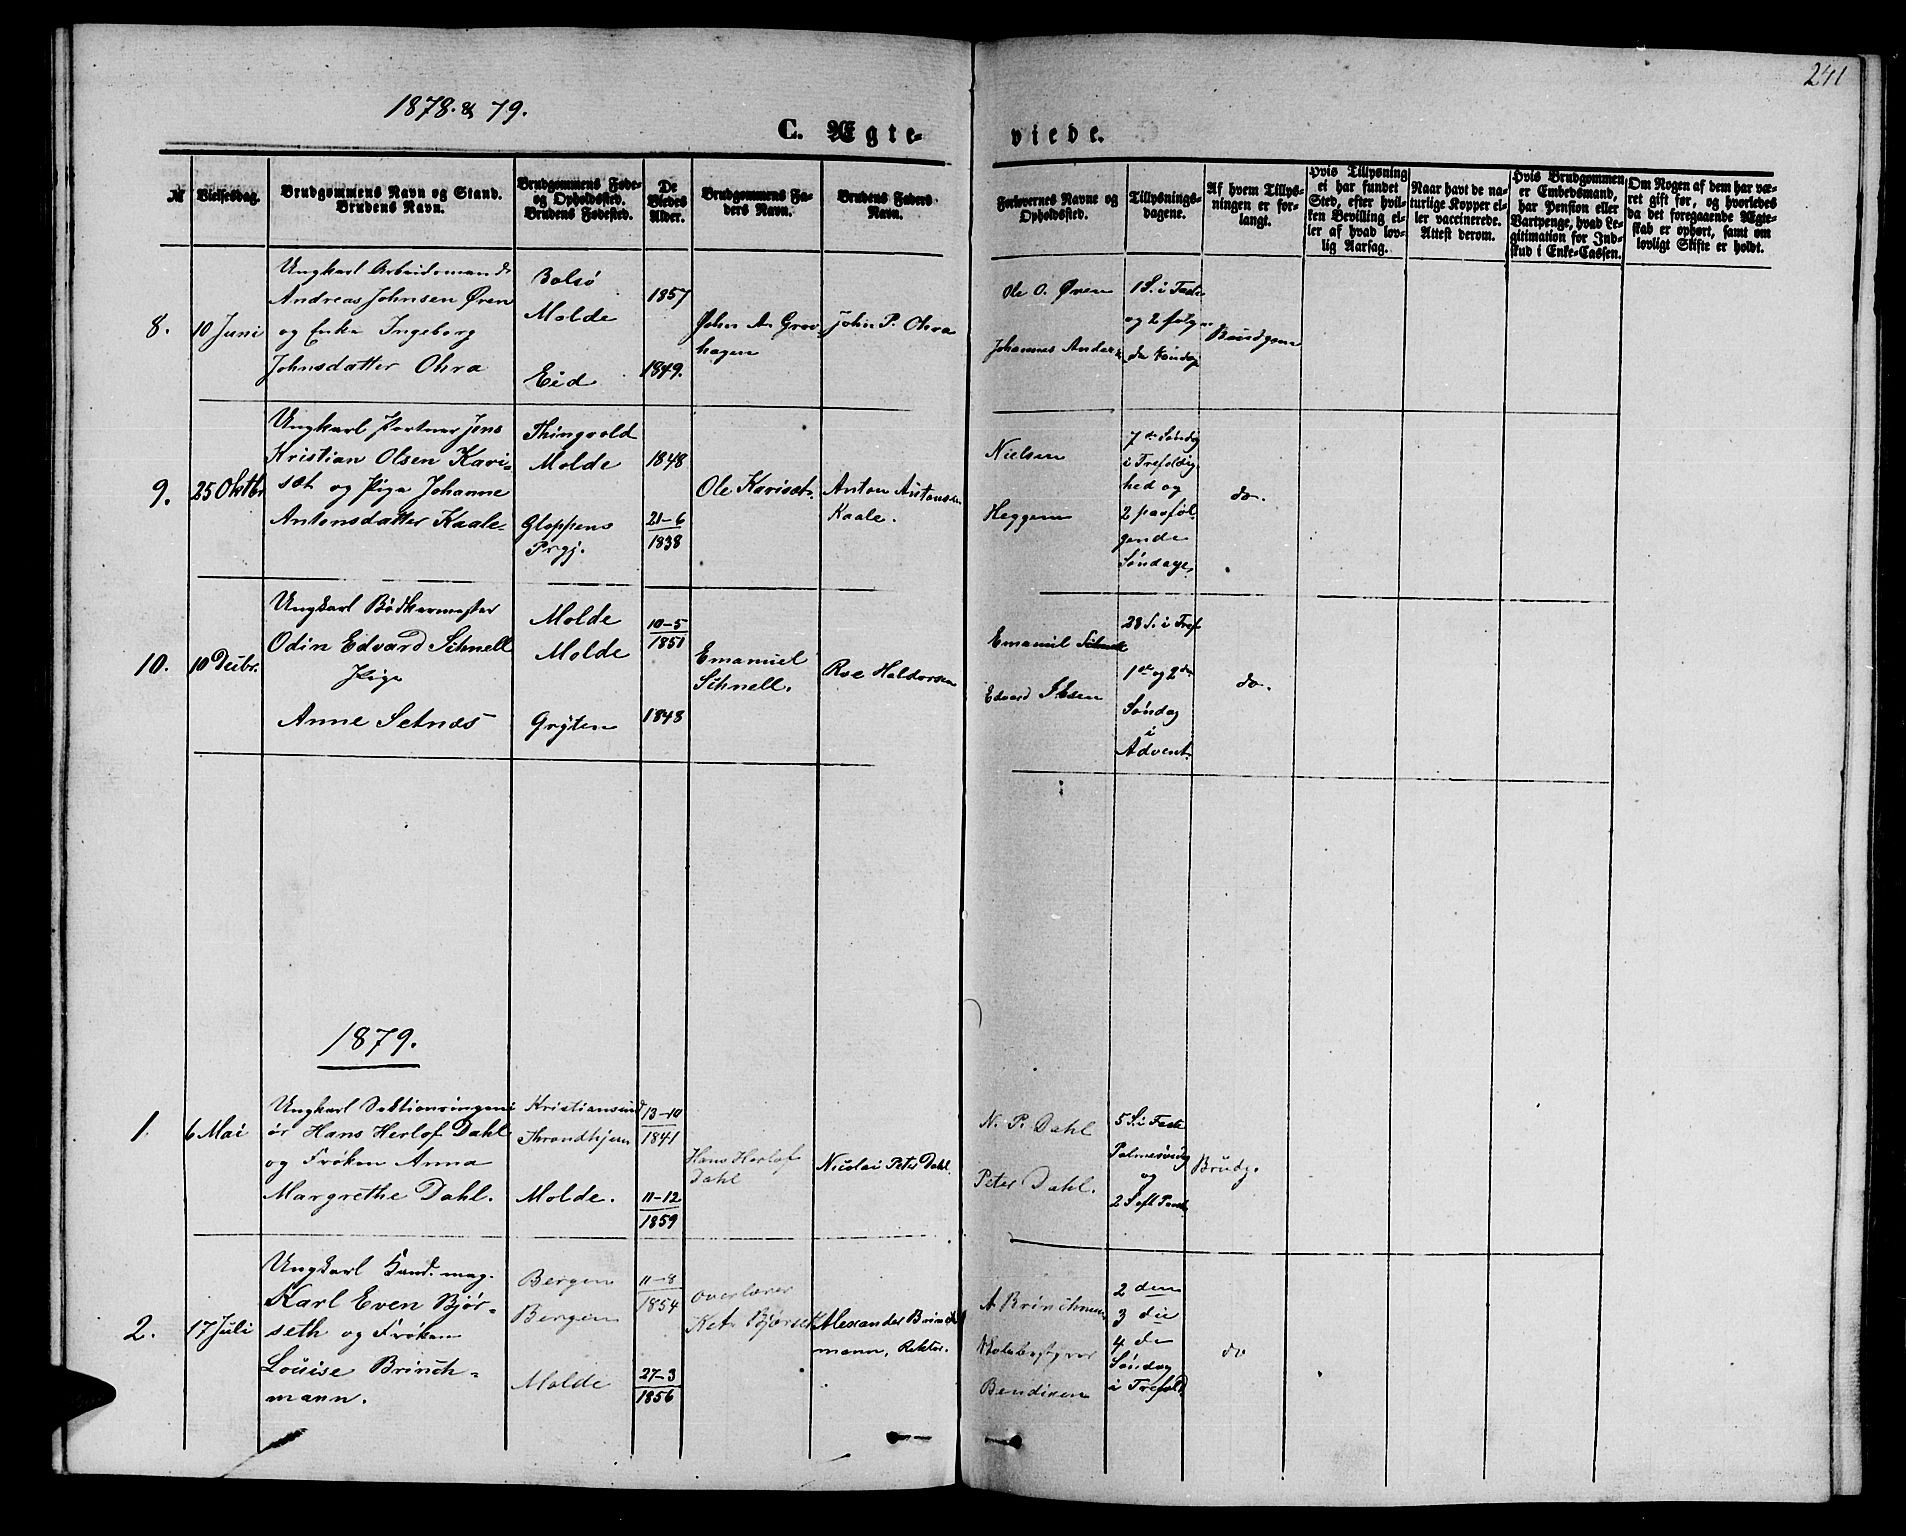 241
1878. & 79.
C. Ægte-
viede.
№
Vielsesdag.
Brudgommens Navn og Stand.
Brudens Navn.
Brudgommens Føde-
og Opholdssted.
Brudens Fødested.
De
Viedes
Alder.
Brudgommens Fa-
ders Navn.
Brudens Faders
Navn.
Forlovernes Navne og
Opholdssted.
Tillysnings-
dagene.
Af hvem Tillys-
ningen er for-
langt.
Hvis Tillysning
ei har fundet
Sted, efter hvil-
ken Bevilling el-
ler af hvad lov-
lig Aarsag.
Naar havt de na-
turlige Kopper el-
ler vaccinerede.
Attest derom.
Hvis Brudgommen
er Embedsmand,
har Pension eller
Vartpenge, hvad Le-
gitimation for Ind-
skud i Enke-Cassen.
Om Nogen af dem har væ-
ret gift før, og hvorledes
da det foregaaende Ægte-
skab er ophørt, samt om
lovligt Skifte er holdt.
8.
10 Juni
Ungkarl Arbeidsmand
Andreas Johnsen Øren
og Enke Ingeborg
Johnsdatter Ohra
Bolsø
Molde
Eid
1857
1849.
John A. Grov-
hagen
John P. Ohra
Ole O. Øren
Johannes
1 S. i Faste
og 2 følgen
de Søndag
Brudgom
9.
25 Oktbr
Ungkarl Portner Jens
Kristian Olsen Kari-
sæt og Pige Johanne
Antonsdatter Kaale-
Thingvold
Molde
Gloppens
Prgj.
1848
21-6
1838
Ole Karisæt.
Anton Antonsen
Kaale.
Nielsen
Heggem
7de Søndag
i Trefoldig
hed og
2 paaføl-
gende
Søndage.
do.
10.
10 Decbr.
Ungkarl Bødkermester
Odin Edvard Schnell
Pige
Anne Setnæs
Molde
Molde
Grytten
10-5
1851
1848
Emanuel
Schnell.
Roe Haldorsen
Emanuel Schnell
Edvard
23 S. i Tref
1ste og 2den
Søndag
i
Advent.
do.
1879.
1.
6 Mai
Ungkarl Sektionsingeni
ør Hans Herlof Dahl
og Frøken Anna
Margrethe Dahl.
Kristiansund
Throndhjem
Molde.
13-10
1841
11-12
1859
Hans Herlof
Dahl
Nicolai Peter Dahl.
N. P. Dahl
Peter Dahl.
5 S. i Faste
Palmesøndag
og
2 S eft Paaske
Brudg.
2.
17 Juli
Ungkarl Kand. mag.
Karl Even Bjør-
seth og Frøken
Louise Brinch-
mann.
Bergen
Bergen
Molde
11-8
1854
27-3
1856
Overlærer
Bjørseth
Alexander Brinch
mann, Rektor.
A Brinchmann
Bendixen
2den
3die
4de
Søndag
i Trefold
do